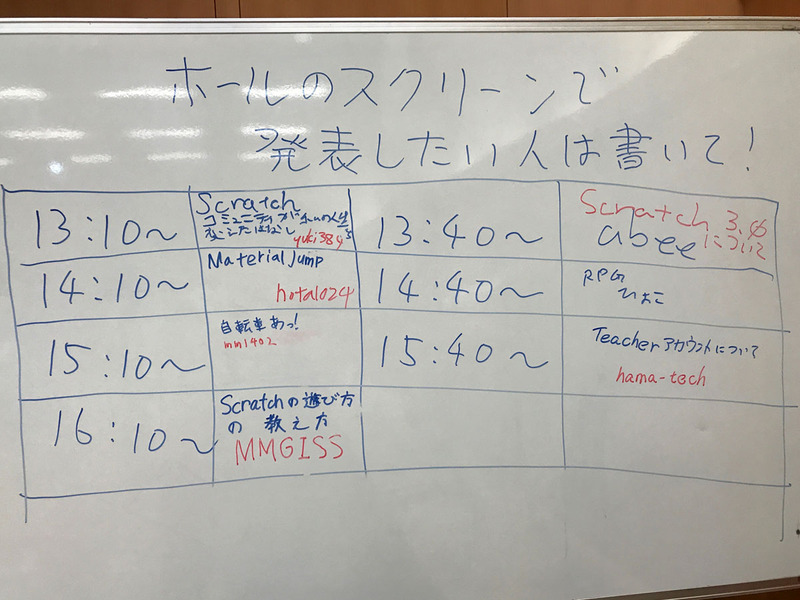 ホールのスクリーンで
発表したい人は書いて!
13:10〜
Scratch
コミュニティが私の人生を
変えたはなし
yuki384
13:40〜
Scratch 3.0
abee について
14:10〜
Material Jump
hotalo24
14:40〜
RPG
ひよこ
15:10〜
自転車あっ!
mm1402
15:40〜
Teacherアカウントについて
hama-tech
16:10〜
Scratchの遊び方
の 教え方
MMGISS